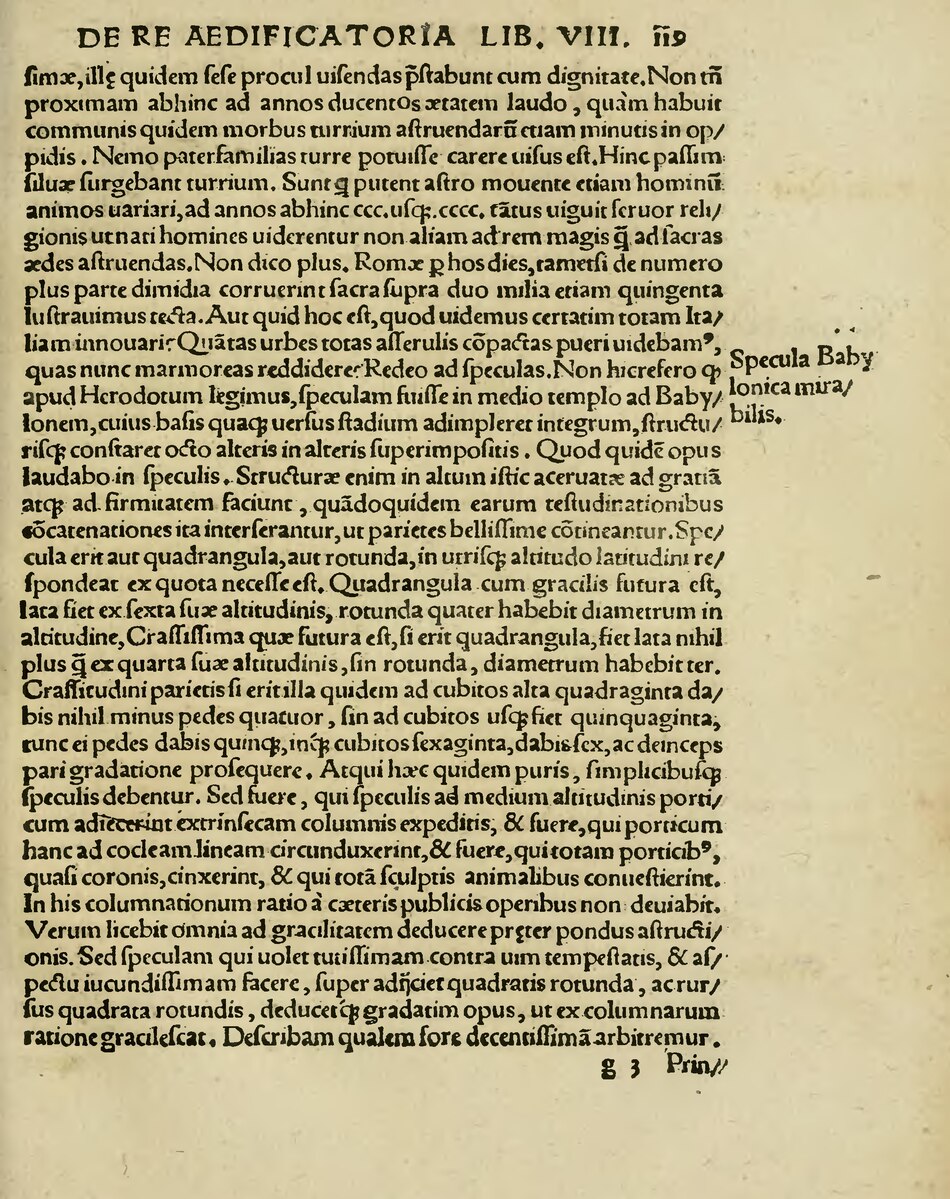 DE RE AEDIFICATORIA LIB. VIII. iiꝯ
ſimæ, illę quidem ſeſe procul uiſendas p̄ſtabunt cum dignitate. Non tñ
proximam abhinc ad annos ducentos ætatem laudo, quàm habuit
communis quidem morbus turrium aſtruendarũ etiam minutis in op/
pidis. Nemo paterfamilias turre potuiſſe carere uiſus eſt. Hinc paſſim
ſiluæ ſurgebant turrium. Sunt ꝗ putent aſtro mouente etiam hominũ
animos uariari, ad annos abhinc ccc. uſꝗ. cccc. tãtus uiguit feruor reli/
gionis ut nati homines uiderentur non aliam ad rem magis q̃ ad ſacras
ædes aſtruendas. Non dico plus. Romæ ꝑ hos dies, tametſi de numero
plus parte dimidia corruerint ſacra ſupra duo milia etiam quingenta
luſtrauimus tecta. Aut quid hoc eſt, quod uidemus certatim totam Ita/
liam innouari? Quãtas urbes totas aſſerulis cõpactas pueri uidebamꝰ,
quas nunc marmoreas reddidere? Redeo ad ſpeculas. Non hic refero ꝙ
apud Herodotum legimus, ſpeculam fuiſſe in medio templo ad Baby/
lonem, cuius baſis quaqꝫ uerſus ſtadium adimpleret integrum, ſtructu/
riſqꝫ conſtaret octo alteris in alteris ſuperimpoſitis. Quod quidẽ opus
laudabo in ſpeculis. Structuræ enim in altum iſtic aceruatæ ad gratiã
atqꝫ ad firmitatem faciunt, quãdoquidem earum teſtudinationibus
cõcatenationes ita interſerantur, ut parietes belliſſime cõtineantur. Spe/
cula erit aut quadrangula, aut rotunda, in utriſqꝫ altitudo latitudini re/
ſpondeat ex quota neceſſe eſt. Quadrangula cum gracilis futura eſt,
lata fiet ex ſexta ſuæ altitudinis, rotunda quater habebit diametrum in
altitudine, Craſſiſſima quæ futura eſt, ſi erit quadrangula, fiet lata nihil
plus q̃ ex quarta ſuæ altitudinis, ſin rotunda, diametrum habebit ter.
Craſſitudini parietis ſi erit illa quidem ad cubitos alta quadraginta da/
bis nihil minus pedes quatuor, ſin ad cubitos uſqꝫ fiet quinquaginta,
tunc ei pedes dabis quinqꝫ, inqꝫ cubitos ſexaginta, dabis ſex, ac deinceps
pari gradatione proſequere. Atqui hæc quidem puris, ſimplicibuſqꝫ
ſpeculis debentur. Sed fuere, qui ſpeculis ad medium altitudinis porti/
cum adiecerint extrinſecam columnis expeditis, & fuere, qui porticum
hanc ad cocleam lineam circunduxerint, & fuere, qui totam porticibꝰ,
quaſi coronis, cinxerint, & qui totã ſculptis animalibus conueſtierint.
In his columnationum ratio à cæteris publicis operibus non deuiabit.
Verum licebit omnia ad gracilitatem deducere pręter pondus aſtructi/
onis. Sed ſpeculam qui uolet tutiſſimam contra uim tempeſtatis, & aſ/
pectu iucundiſſimam facere, ſuper adijciet quadratis rotunda, ac rur/
ſus quadrata rotundis, deducetqꝫ gradatim opus, ut ex columnarum
ratione gracileſcat. Deſcribam qualem fore decentiſſimã arbitremur.
g 3 Prin//
Specula Baby
lonica mira/
bilis.